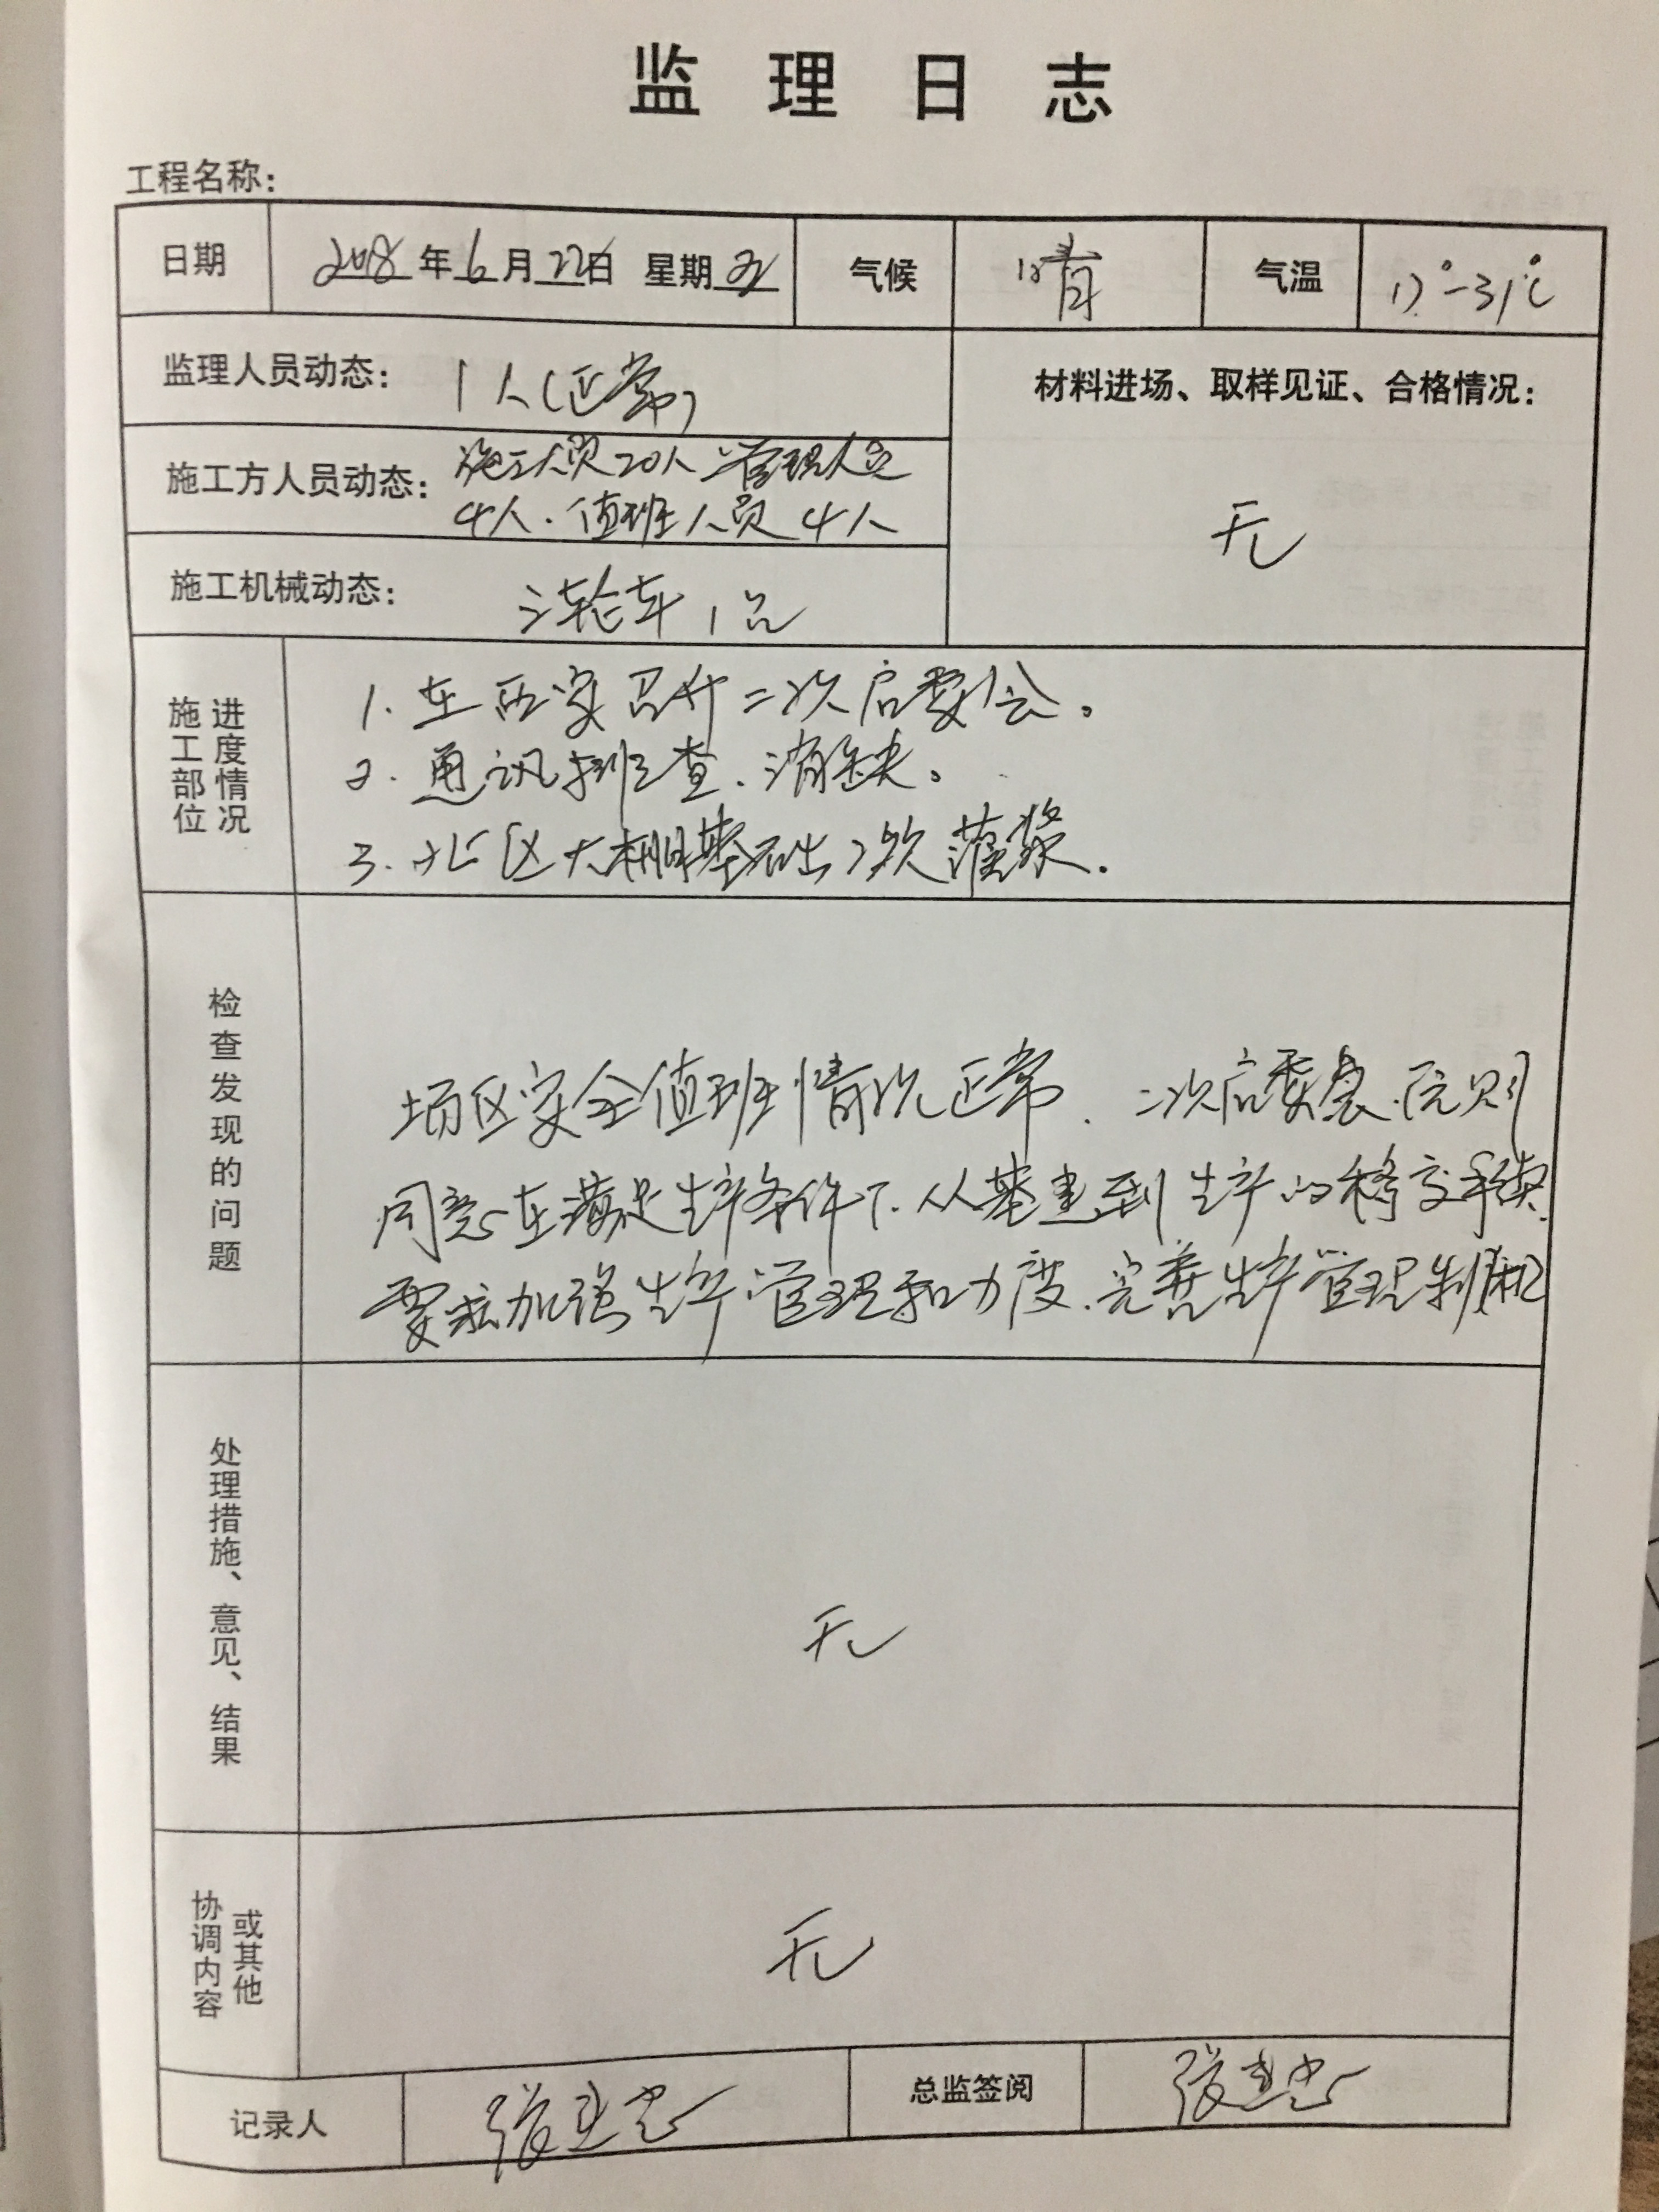 监理日志
工程名称:
日期 2018年6月22日 星期五 气候 晴 气温 17°-31℃
监理人员动态: 1人(正常) 材料进场、取样见证、合格情况:
施工方人员动态: 施工人员20人 管理人员
4人. 值班人员 4人
无
施工机械动态: 三轮车 1台
施工部位 进度情况
1. 在西安召开二次启委会。
2. 通讯排查、消缺。
3. 北区大棚基础二次灌浆.
检查发现的问题
场区安全值班情况正常、二次启委会、原则
同意在满足生产条件下.从基建到生产的移交手续.
要求加强生产管理和力度.完善生产管理制
处理措施、意见、结果
无
协调内容 或其他
无
记录人 张 总监签阅 张